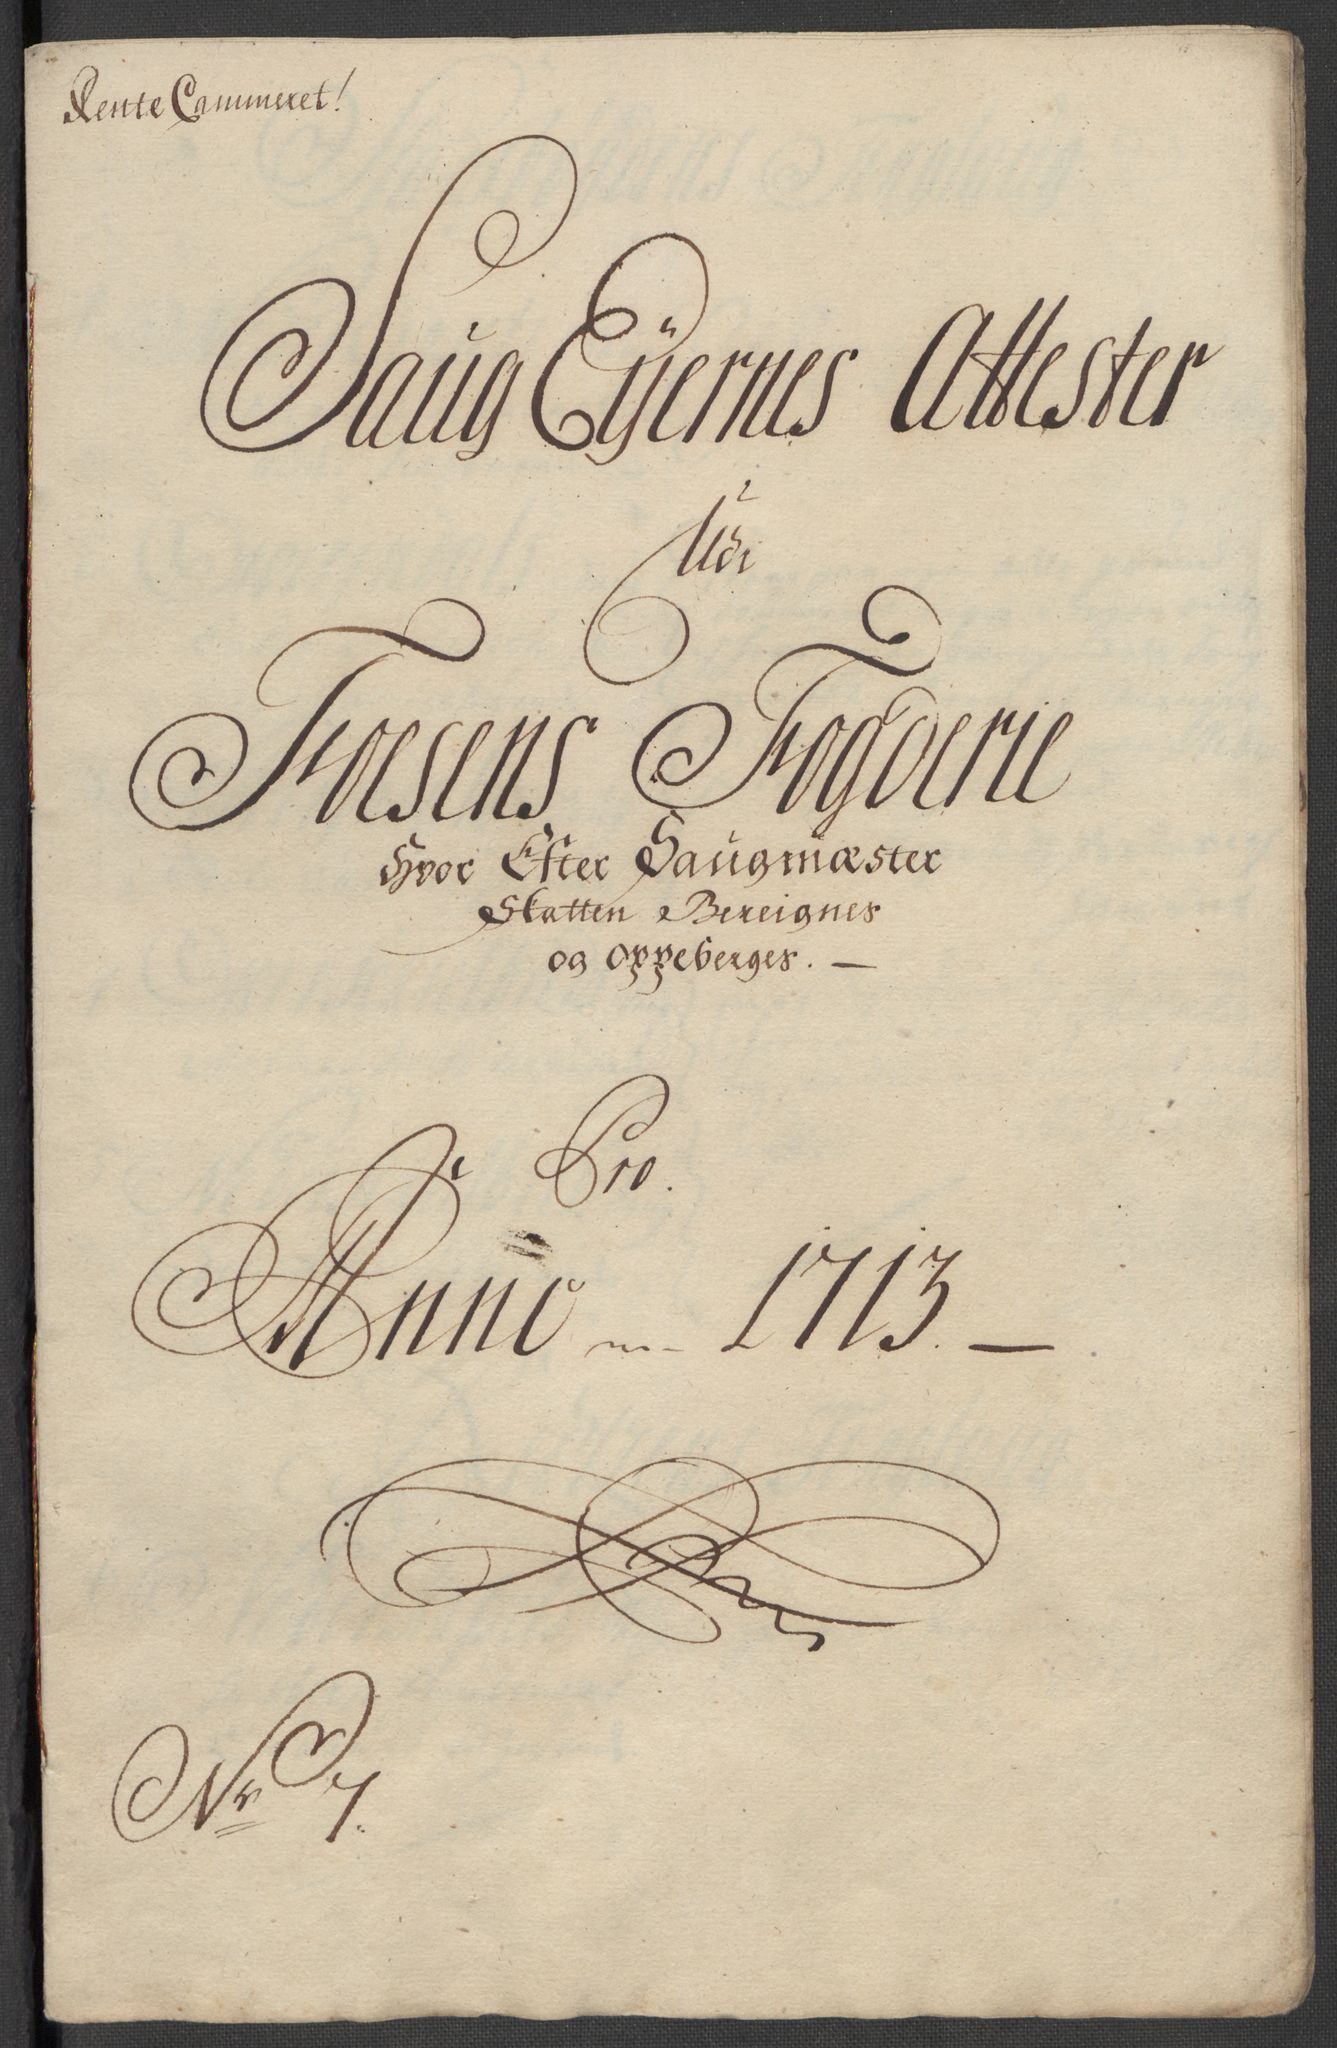 Rente Cammeret!
Saug Eÿernes Attester
Udi
Foesens Fogderie
Hvor Efter Saugmæster
Skatten Bereignes
og oppeberges. —
Pro.
Anno 1713. —
Nr 7.